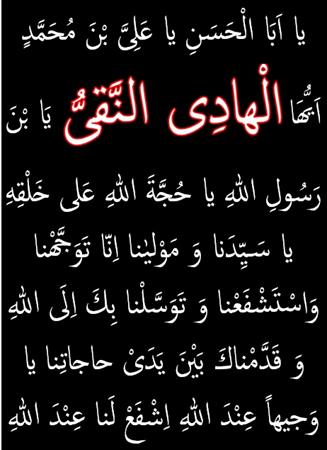 يا اَبَا الْحَسَنِ يا عَلِىَّ بْنَ مُحَمَّدٍ
اَيُّهَا الْهادِى النَّقِىُّ يَا بْنَ
رَسُولِ اللهِ يا حُجَّةَ اللهِ عَلى خَلْقِهِ
يا سَيِّدَنا وَ مَوْلينا اِنّا تَوَجَّهْنا
وَاسْتَشْفَعْنا وَ تَوَسَّلْنا بِكَ اِلَى اللهِ
وَ قَدَّمْناكَ بَيْنَ يَدَىْ حاجاتِنا يا
وَجيهاً عِنْدَ اللهِ اِشْفَعْ لَنا عِنْدَ اللهِ